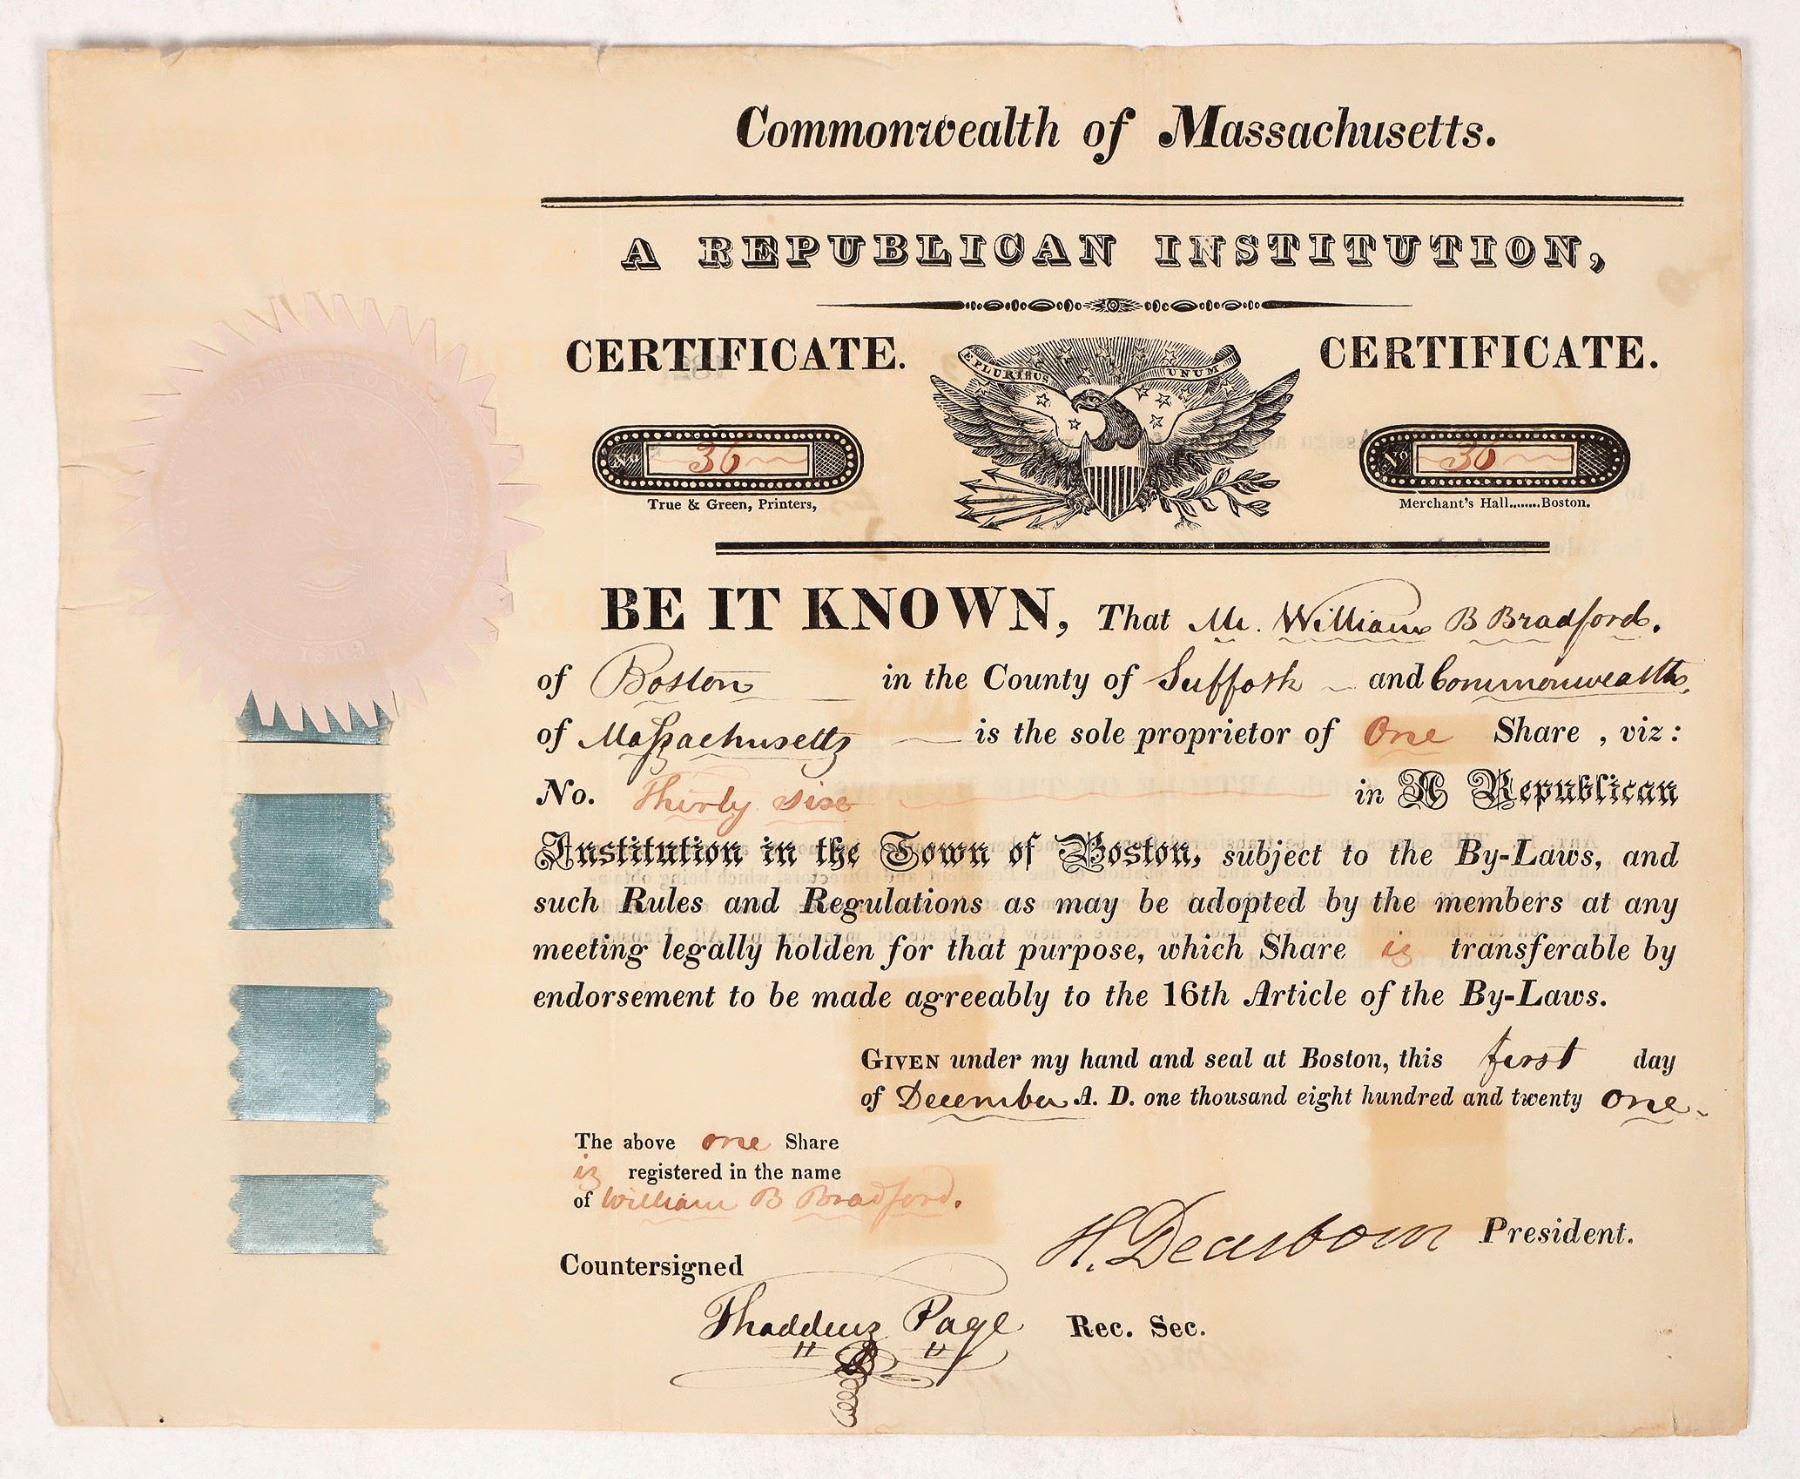 Commonwealth of Massachusetts.
A REPUBLICAN INSTITUTION,
CERTIFICATE.
E PLURIBUS UNUM
CERTIFICATE.
No. 36
No. 36
True & Green, Printers,
Merchant's Hall........Boston.
BE IT KNOWN, That Mr. William B Bradford.
of Boston in the County of Suffolk and Commonwealth
of Massachusetts is the sole proprietor of One Share , viz:
No. Thirty six in A Republican
Institution in the Town of Boston, subject to the By-Laws, and
such Rules and Regulations as may be adopted by the members at any
meeting legally holden for that purpose, which Share is transferable by
endorsement to be made agreeably to the 16th Article of the By-Laws.
GIVEN under my hand and seal at Boston, this first day
of December A. D. one thousand eight hundred and twenty one.
The above one Share
is registered in the name
of William B Bradford.
H. Dearborn President.
Countersigned
Thaddeus Page Rec. Sec.
1819